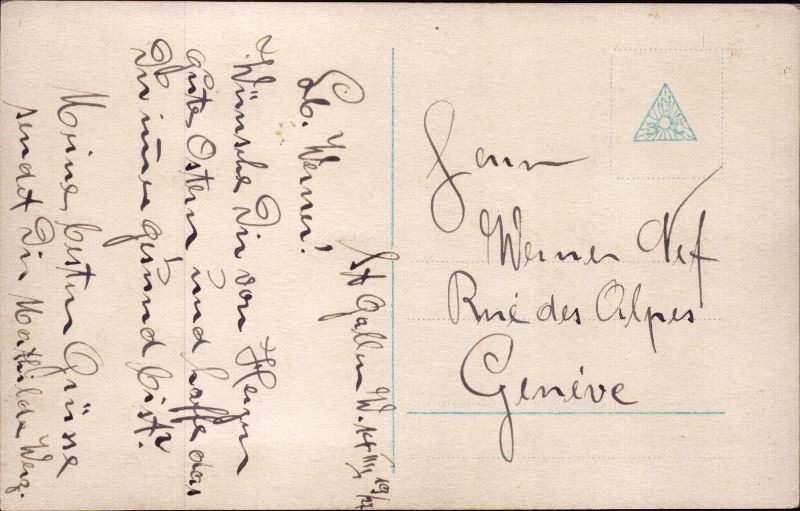 St Gallen W. 14 III 19/17
Lb. Werner!
Wünsche Dir von Herzen
gute Ostern und hoffe das
Du immer gesund bist.
Meine besten Grüsse
sendet Dir Mathilde Werz.
Herrn
Werner Nef
Rue des Alpes
Genève